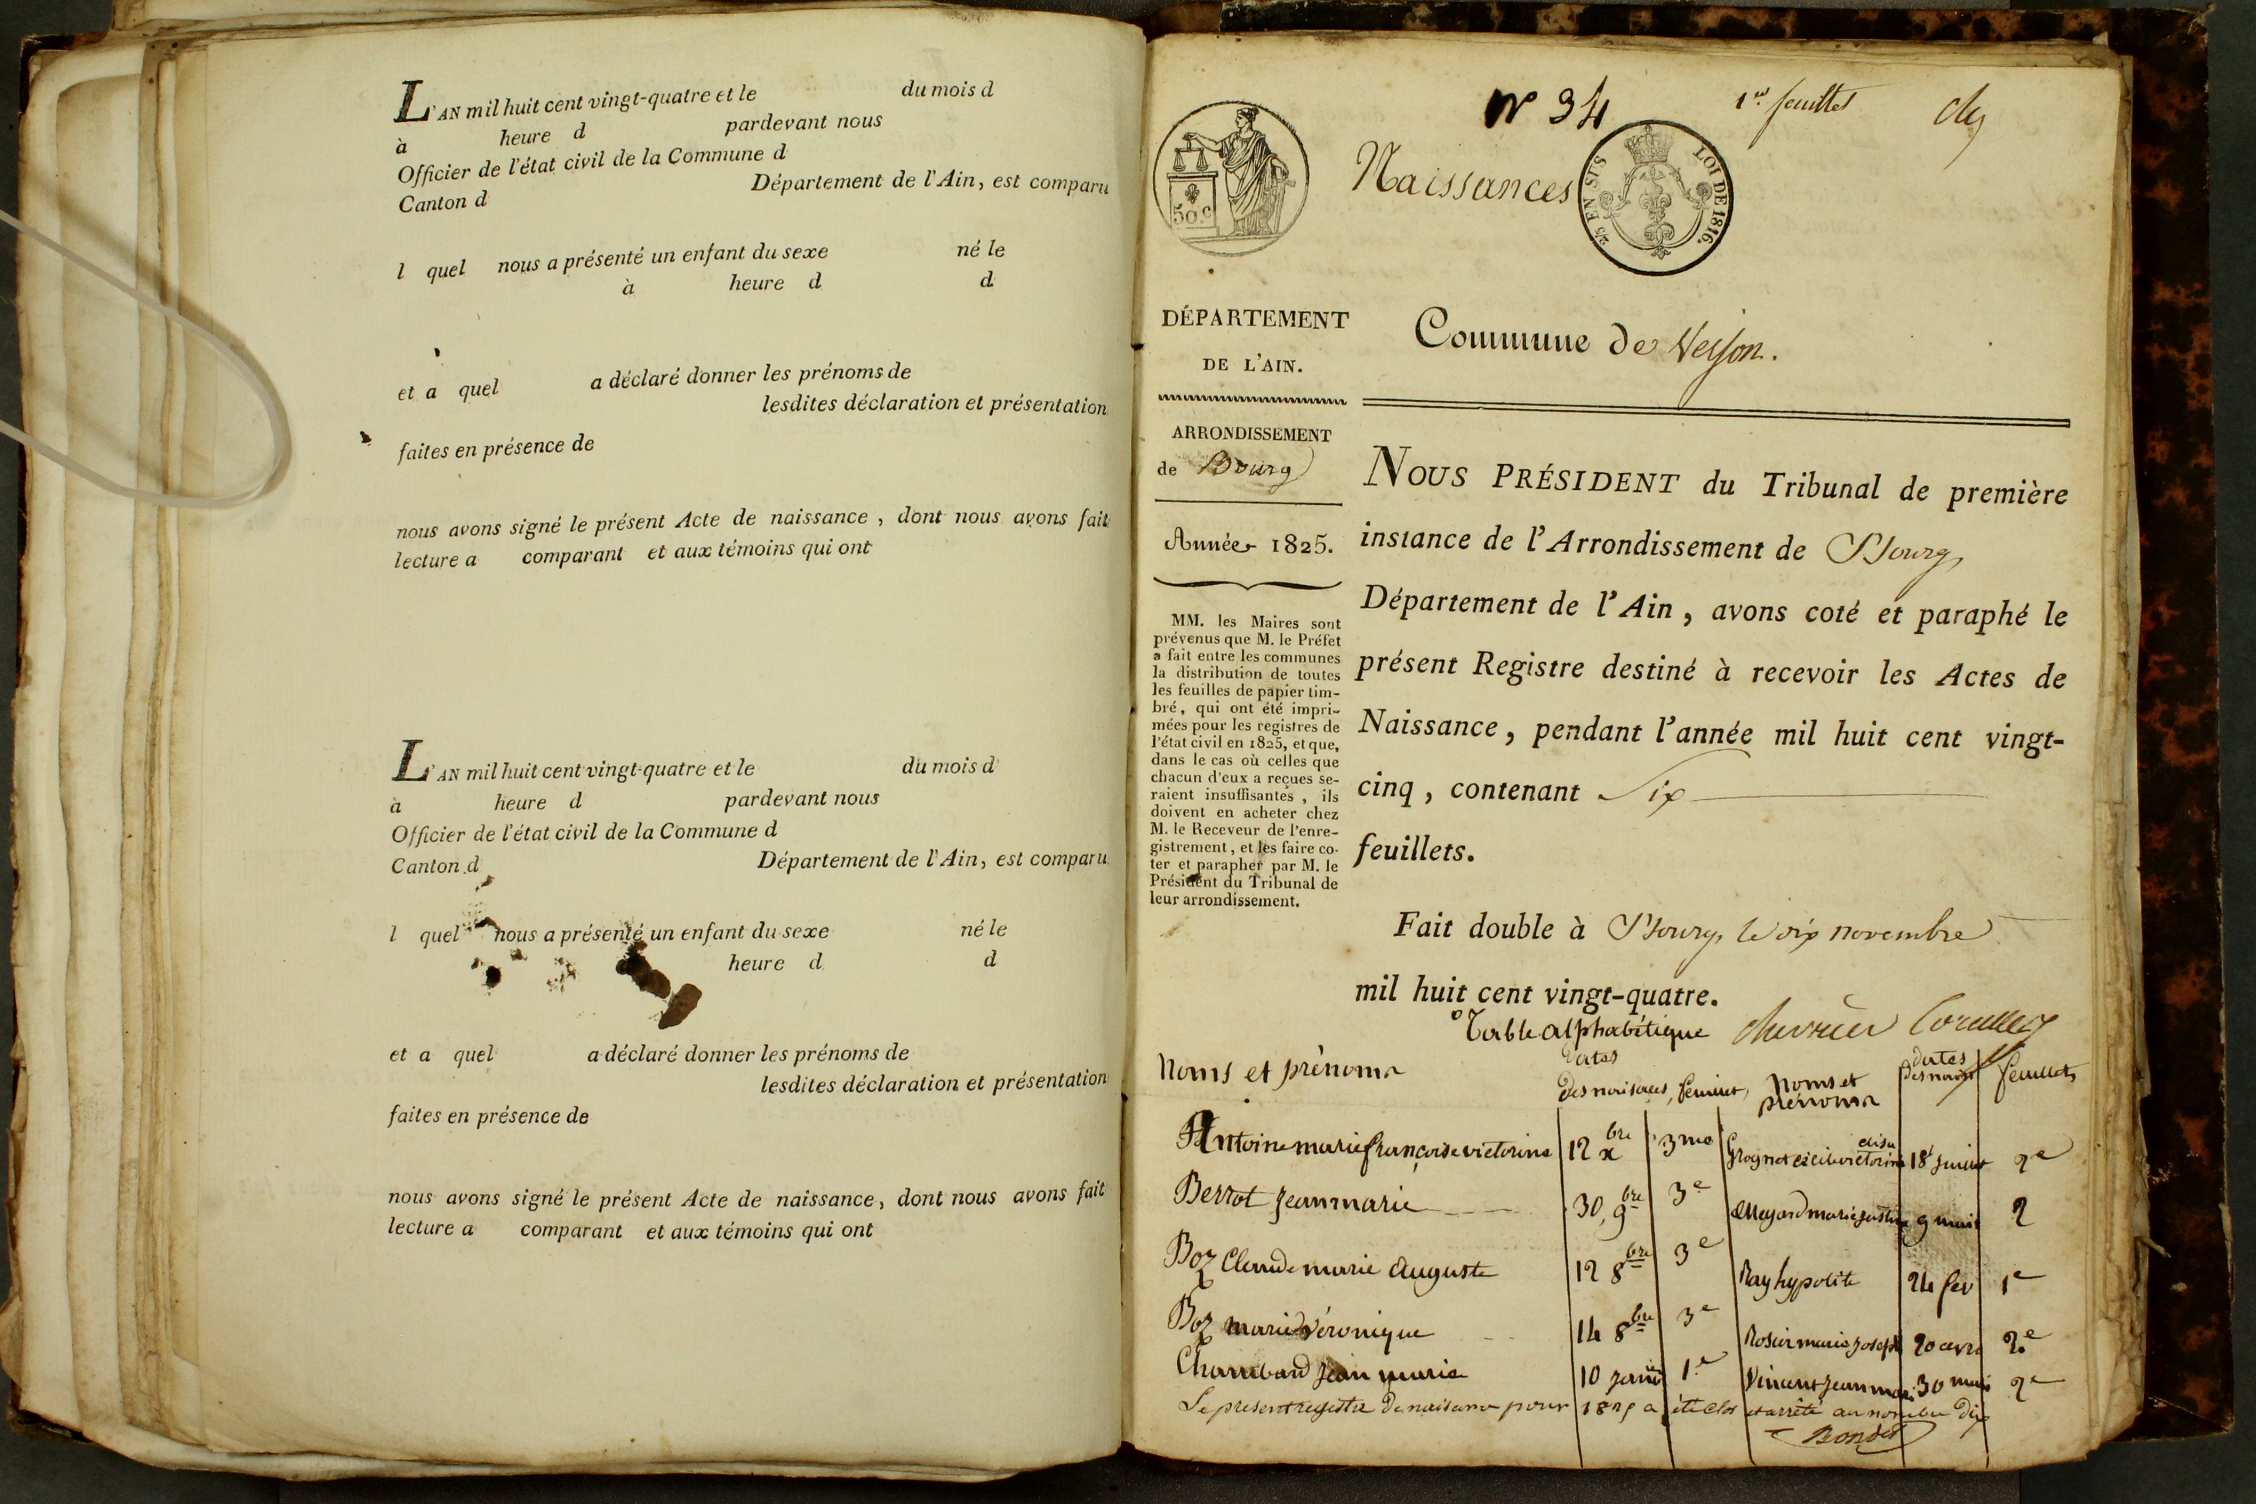 L'AN mil huit cent vingt-quatre et le du mois d
à heure d pardevant nous
Officier de l'état civil de la Commune d
Canton d Département de l'Ain, est comparu
l quel nous a présenté un enfant du sexe né le
à heure d d
et a quel a déclaré donner les prénoms de
lesdites déclaration et présentation
faites en présence de
nous avons signé le présent Acte de naissance, dont nous avons fait
lecture a comparant et aux témoins qui ont
L'AN mil huit cent vingt-quatre et le du mois d
à heure d pardevant nous
Officier de l'état civil de la Commune d
Canton d Département de l'Ain, est comparu
l quel nous a présenté un enfant du sexe né le
heure d d
et a quel a déclaré donner les prénoms de
lesdites déclaration et présentation
faites en présence de
nous avons signé le présent Acte de naissance, dont nous avons fait
lecture a comparant et aux témoins qui ont
N° 34 1er feuillet
50 c
Naissances
2/5 EN SUS LOI DE 1816.
DÉPARTEMENT
DE L'AIN.
Commune de
ARRONDISSEMENT
de Bourg
Année 1825.
MM. les Maires sont
prévenus que M. le Préfet
a fait entre les communes
la distribution de toutes
les feuilles de papier tim-
bré, qui ont été impri-
mées pour les registres de
l'état civil en 1825, et que,
dans le cas où celles que
chacun d'eux a reçues se-
raient insuffisantes, ils
doivent en acheter chez
M. le Receveur de l'enre-
gistrement, et les faire co-
ter et parapher par M. le
Président du Tribunal de
leur arrondissement.
NOUS PRÉSIDENT du Tribunal de première
instance de l'Arrondissement de Bourg
Département de l'Ain, avons coté et paraphé le
présent Registre destiné à recevoir les Actes de
Naissance, pendant l'année mil huit cent vingt-
cinq, contenant Six
feuillets.
Fait double à Bourg, le dix novembre
mil huit cent vingt-quatre.
Table alphabétique
Noms et prénoms dates des naissances feuillet noms et prénoms dates feuillets
Antoine marie françoise victorine 12 xbre 3me victorine 18 juillet 2e
Berrot jean marie 30, 9bre 3e 9 2
Boz Claude marie Auguste 12 8bre 3e Ray hypolite 24 fev 1e
Boz marie véronique 14 8bre 3e marie joseph 20 avri 2e
Chambard jean marie 10 janv 1e Vincent jean mari 30 2e
Le present registre de naissance pour 1825 a été clos et arrêté au nombre dix